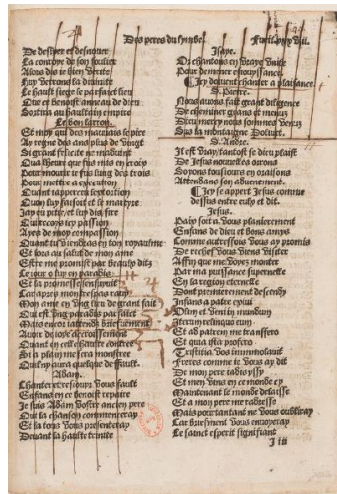 Des peres du lymbe. Fueil. xxxviii.
De deslyer et desnouer
La contoye de son soulier
Alors dis ie bien verite
Fuy verrons la diuinite
Le hault siege se parfaict lieu
Que
Sortira au haultain empire
Le bon larron.
Et moy qui des mauuais le pire
Ay regne des ans plus de vingt
Si grant felicite me aduint
Qua lheure que fus mis en croix
Pour mourir je fus lung des trois
Pour mettre a execution
Quant iapperceu lextortion
Quon luy faisoit et le martyre
Jay eu pitie et luy dis sire
Qui recoys tey passion
Ayes de moy compassion
Quant tu viendras en ton royaulme
Et lors au salut de mon ame
Estre me promist par beaulx ditz
Le iour o luy en paradis
Et sa promesse sensuyuit
Car apres mon trespas rauy
Mon ame en ung lieu de grant fait
Qui est ung paradis parfaict
Mais encor iattendz briefuement
Auoir de ioye accroissement
Quant en ceste chartre contree
Si a plain me sera monstree
Quil ny aura quelque deffault.
Adam.
Chanter et resiouyr vous fault
Enfans en ce benoist repaire
Je suis Adam vostre ancien pere
Qui la chanson commenceray
Et la tous vous presenteray
Deuant la haulte trinite
Isaye.
Or chantons en vraye vnite
Pour demener esiouyssance.
Icy doiuent chanter a plaisance.
S. Pierre.
Nous auons fait grant diligence
De cheminer grans et menus
Dieu mercy nous sommes venus
Sus la montaigne Doliuet.
S. Andre.
Il est vray, tantost se dieu plaist
De Jesus nouuelles aurons
Soyons tousiours en oraisons
Attendans son aduenement.
Icy se appert Jesus comme
dessus entre eulx et dit.
Jesus.
Paix soit a vous planierement
Enfans de dieu et bons amys
Comme autresfois vous ay promis
De rechef vous viens visiter
Affin que me voyez monter
Par ma puissance supernelle
En la region eternelle
Dont premierement descendy
Infans a patre exiui
Dum et veni in mundum
Iterum relinquo eum
Et ad patrem me transfero
Et quia ista profero
Tristitia vos immutolauit
Freres comme ie vous ay dit
De mon pere iadis yssy
Et men vins en ce monde cy
Maintenant le monde delaisse
Et a mon pere me radresse
Mais pourtant ne vous oubliray
Car briefment vous enuoyeray
Le sainct esperit signifiant
J iii